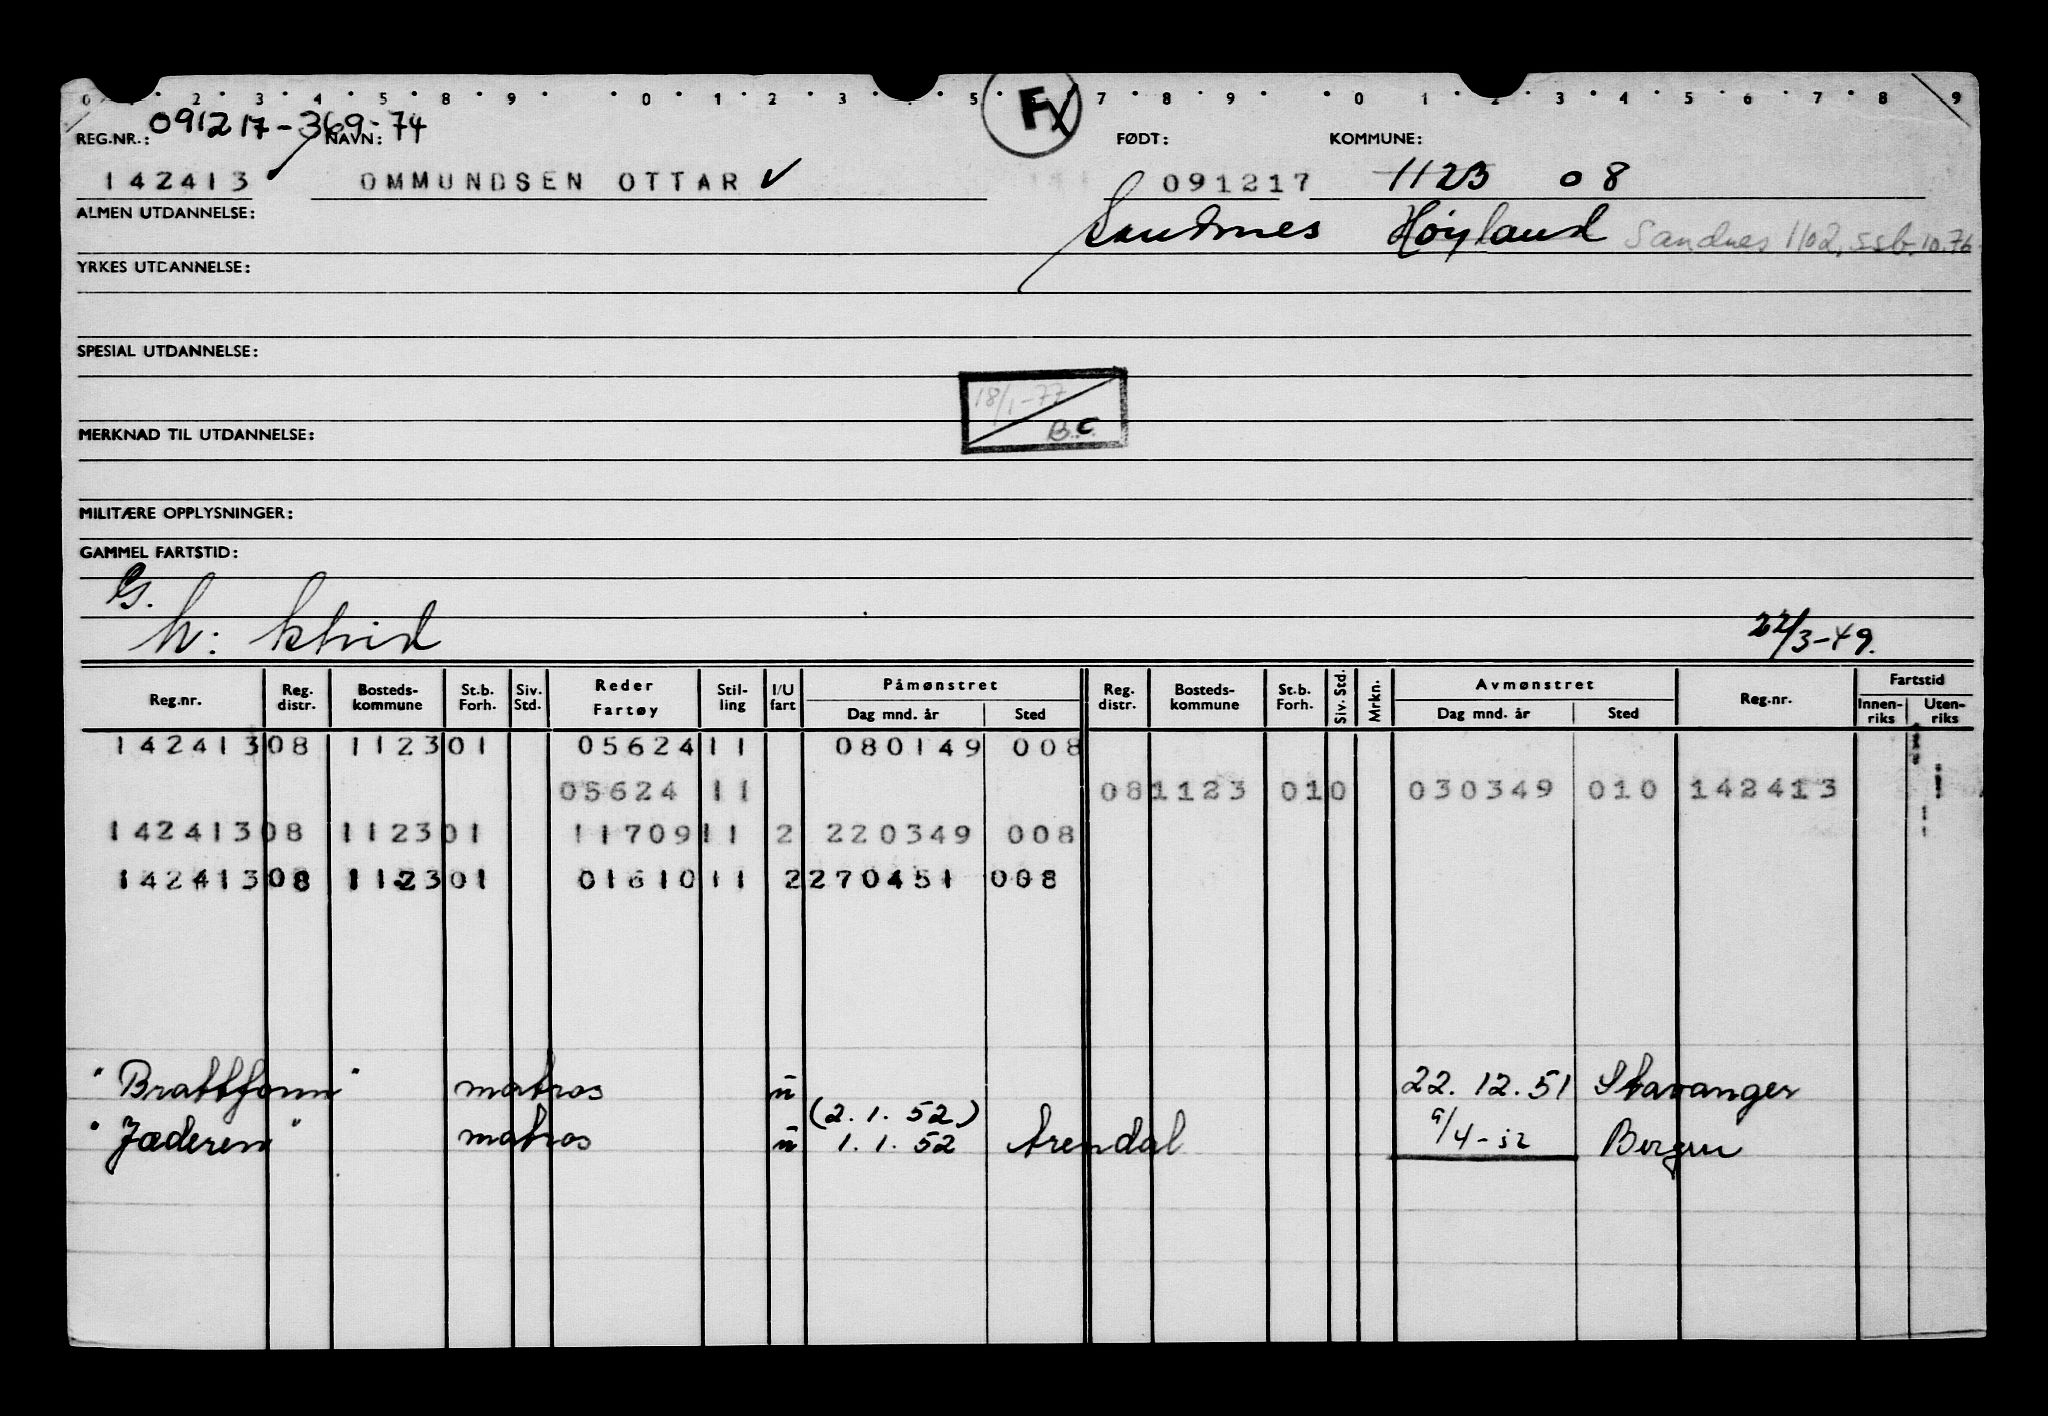 0 1 2 3 4 5 8 9 0 1 2 3 4 5 6 7 8 9 0 1 2 3 4 5 6 7 8 9
REG.NR.: 091217-369-74 NAVN: FX FØDT: KOMMUNE:
142413 OMMUNDSEN OTTAR ✓ 091217 1123 08
ALMEN UTDANNELSE: Sandnes Høyland Sandnes 1102, ssb. 10.76
YRKES UTDANNELSE:
SPESIAL UTDANNELSE:
18/1-77
B.C.
MERKNAD TIL UTDANNELSE:
MILITÆRE OPPLYSNINGER:
GAMMEL FARTSTID:
G.
h:
22/3-49.
Reg.nr. Reg. distr. Bosteds-kommune St.b. Forh. Siv. Std. Reder Fartøy Stil-ling I/U fart Påmønstret Dag mnd. år Sted Reg. distr. Bosteds-kommune St.b. Forh. Siv. Std. Mrkn. Avmønstret Dag mnd. år Sted Reg.nr. Fartstid Innen-riks Uten-riks
142413 08 1123 01 05624 11 080149 008
05624 11 08 1123 01 0 030349 010 142413
142413 08 1123 01 11709 11 2 220349 008
142413 08 1123 01 01610 11 2 270451 008
"Brattfonn" matros ü 22.12.51 Stavanger
(2.1.52)
"Jæderen" matros ü 1.1.52 Arendal 9/4-52 Bergen